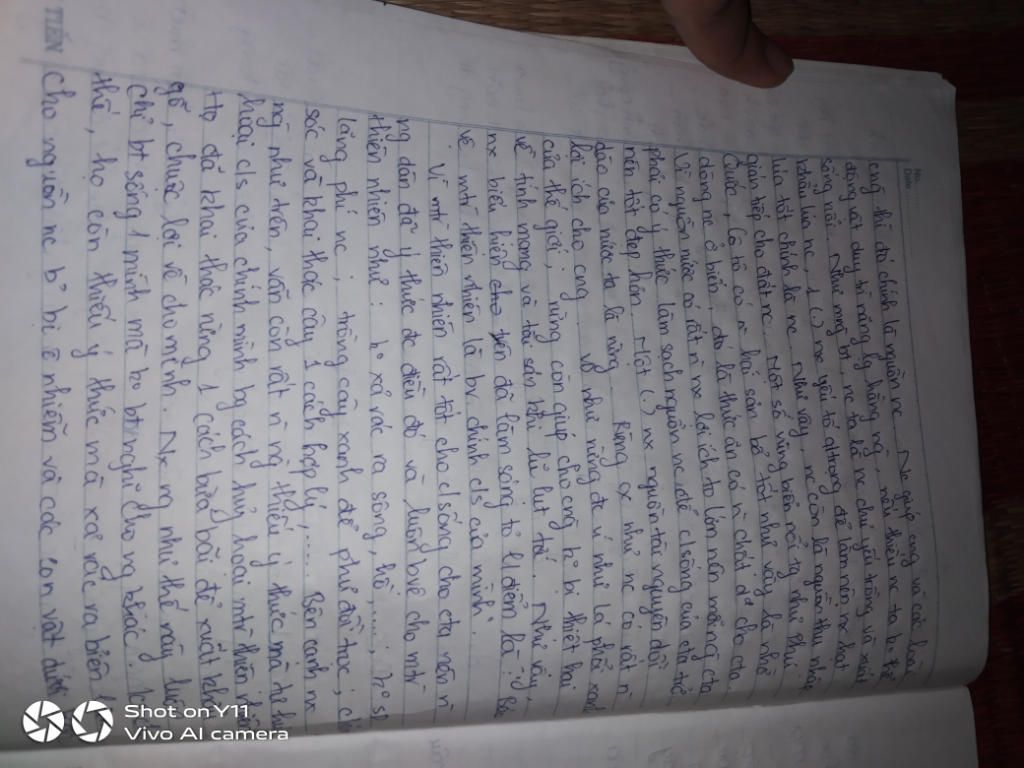 No.
Date
cng thì đó chính là nguồn nc. Nc giúp cng và các loài
động vật duy trì năng lg hằng ng, nếu thiếu nc ta ko thể
sống nổi. Như mng bt, nc ta là nc chủ yếu trồng và xuất
khẩu lúa nc, 1 (.) nx yếu tố qtrong để làm nên nx hạt
lúa tốt chính là nc. Như vậy, nc còn là nguồn thu nhập
gián tiếp cho đất nc. Một số vùng biển nổi tg như Phú
Quốc, Cô tô có n hải sản bổ, tốt như vậy là nhờ
dòng nc ở biển, đó là thức ăn có n chất d² cho cta.
Vì nguồn nước có rất n nx lợi ích to lớn nên mỗi ng cta
phải có ý thức làm sạch nguồn nc để c/sống của cta trở
nên tốt đẹp hơn. Một (.) nx nguồn tài nguyên dồi
dào của nước ta là rừng. Rừng cx như nc có rất n
lợi ích cho cng. Vd như rừng đc ví như lá phổi xanh
của thế giới; rừng còn giúp cho cng ko bị thiệt hại
về tính mạng và tài sản khi lũ lụt tới. Như vậy,
nx biểu hiện trên đã làm sáng tỏ q/điểm là: "Bảo
vệ mtr thiên nhiên là bv chính c/s của mình".
Vì mtr thiên nhiên rất tốt cho c/sống cho cta nên n
ng dân đã ý thức đc điều đó và luôn bvệ cho mtr
thiên nhiên như: ko xả rác ra sông, hồ,...; ko
lãng phí nc; trồng cây xanh để phủ đồi trọc;
sóc và khai thác cây 1 cách hợp lý,... Bên cạnh nx
ng như trên, vẫn còn rất n ng thiếu ý thức mà
hoại c/s của chính mình bg cách huỷ hoại mtr thiên
Họ đã khai thác rừng 1 cách bừa bãi để xuất khẩu
gỗ, chuộc lợi về cho mình. Nx ng như thế này
chỉ bt sống 1 mình mà ko bt nghĩ cho ng khác.
thế, họ còn thiếu ý thức mà xả rác ra biển
cho nguồn nc bị ô nhiễm và các con vật dưới
TIẾN
Shot on Y11
Vivo AI camera